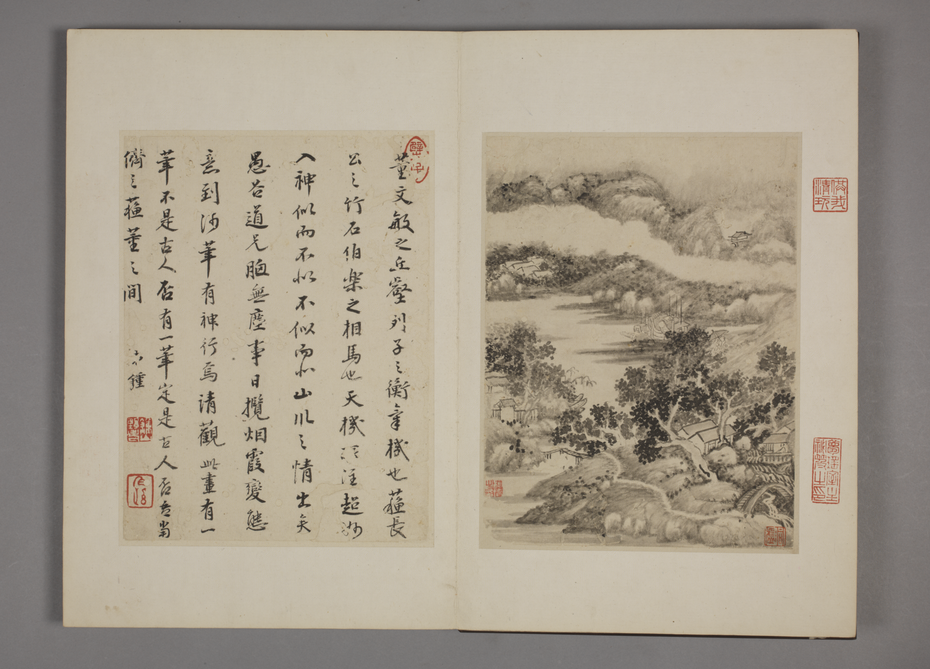 董文敏之丘壑列子之衡氣機也蘓長
公之竹石伯樂之相馬也天機 超
入神似而不似不似而似山川之情出矣
愚谷道兄胸無塵事日攬烟霞變態
意到涉筆有神行焉請觀此畫有一
筆不是古人否有一筆定是古人否吾當
儕之蘓董之間